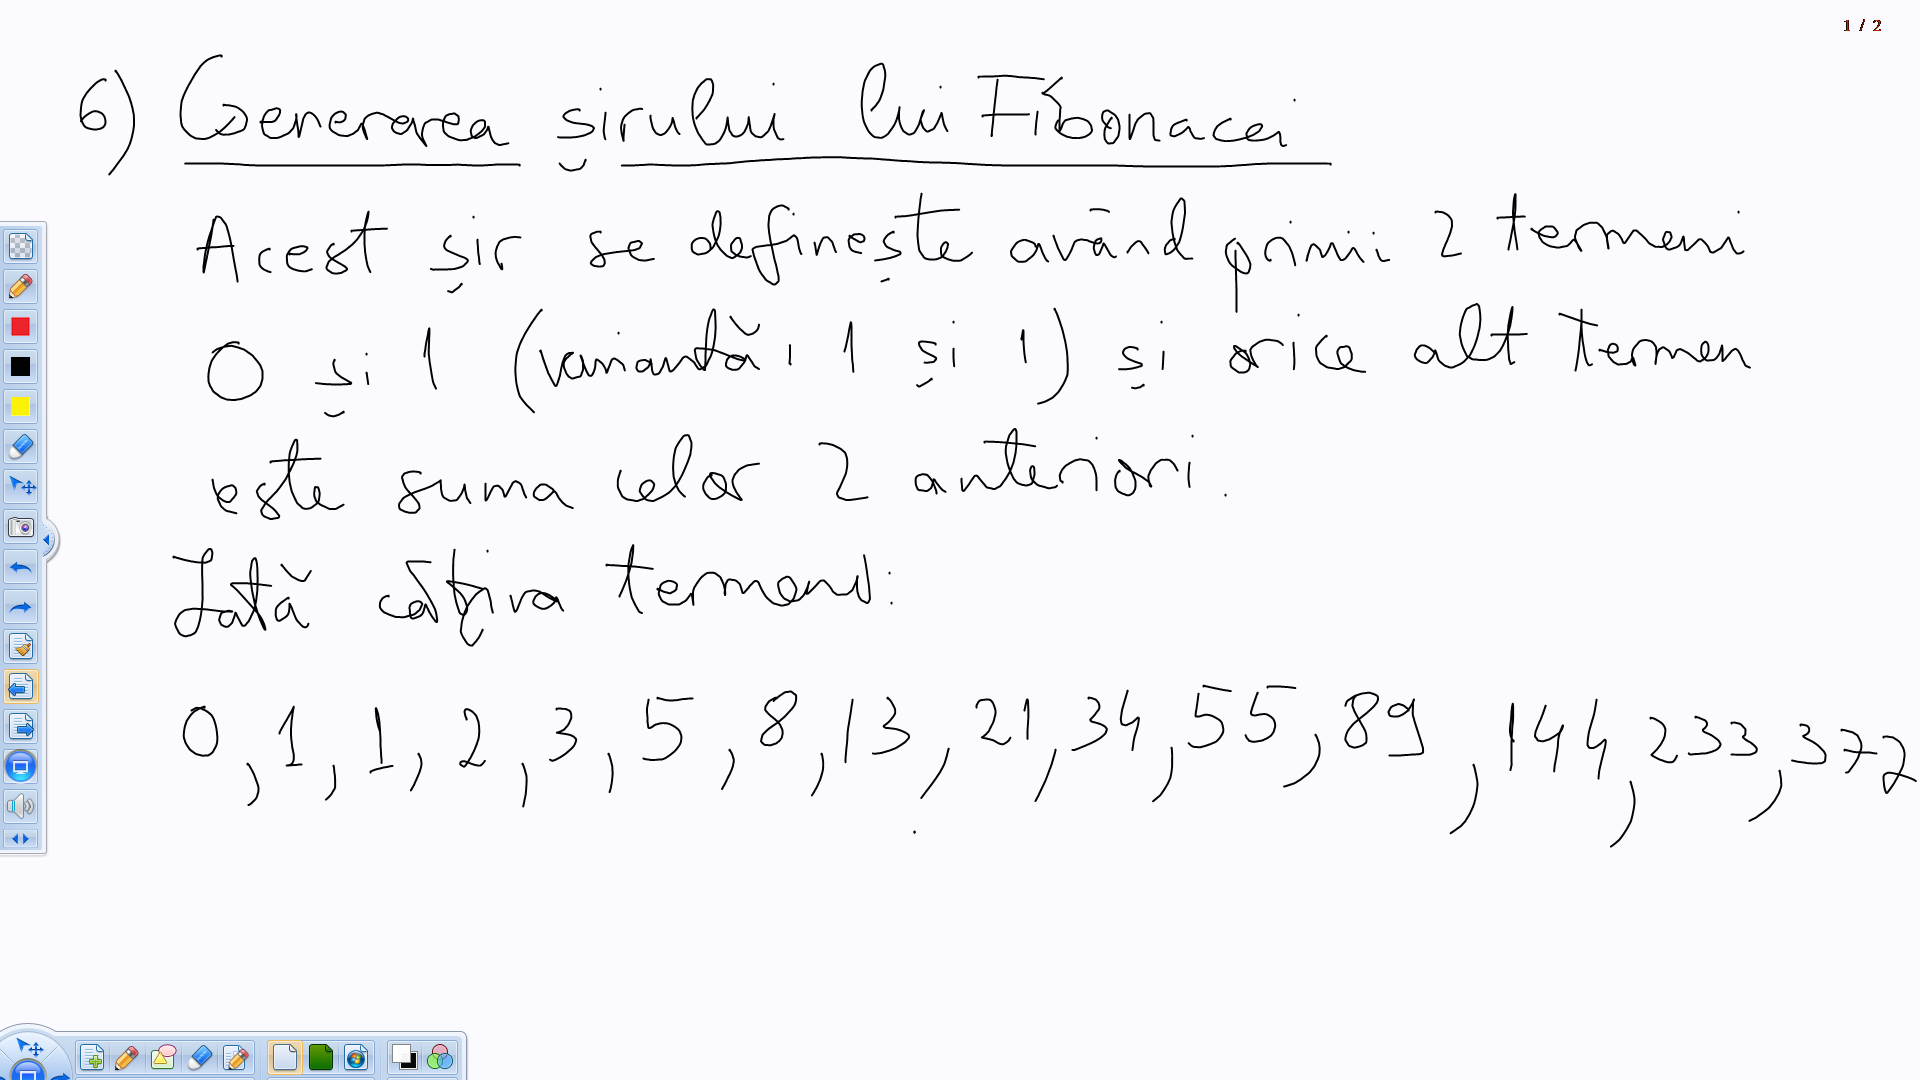 1 / 2
6) Generarea șirului lui Fibonacci
Acest șir se definește având primii 2 termeni
0 și 1 (variantă: 1 și 1) și orice alt termen
este suma celor 2 anteriori.
Iată câțiva termeni:
0, 1, 1, 2, 3, 5, 8, 13, 21, 34, 55, 89, 144, 233, 372